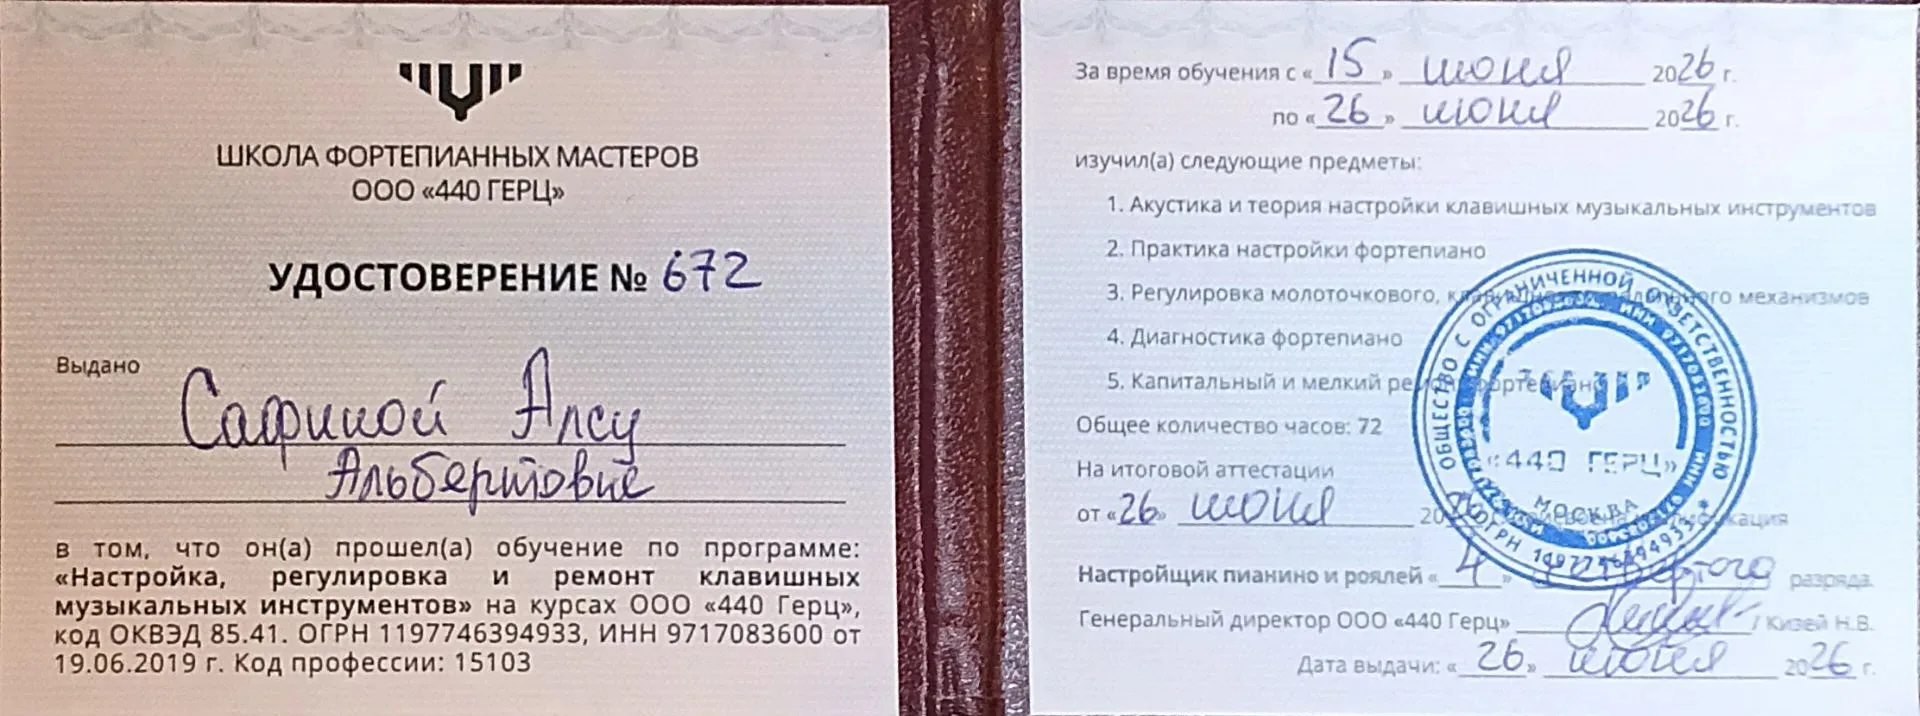 ШКОЛА ФОРТЕПИАННЫХ МАСТЕРОВ
ООО «440 ГЕРЦ»
УДОСТОВЕРЕНИЕ № 672
Выдано
Сафиной Алсу
Альбертовне
в том, что он(а) прошел(а) обучение по программе:
«Настройка, регулировка и ремонт клавишных
музыкальных инструментов» на курсах ООО «440 Герц»,
код ОКВЭД 85.41. ОГРН 1197746394933, ИНН 9717083600 от
19.06.2019 г. Код профессии: 15103
За время обучения с «15» июня 2026 г.
по «26» июня 2026 г.
изучил(а) следующие предметы:
1. Акустика и теория настройки клавишных музыкальных инструментов
2. Практика настройки фортепиано
3. Регулировка молоточкового, механизмов
4. Диагностика фортепиано
5. Капитальный и мелкий ремонт фортепиано
Общее количество часов: 72
На итоговой аттестации
от «26» июня
Настройщик пианино и роялей «4» четвертого разряда.
Генеральный директор ООО «440 Герц» / Кизей Н.В.
Дата выдачи: «26» июня 2026 г.
ОБЩЕСТВО С ОГРАНИЧЕННОЙ ОТВЕТСТВЕННОСТЬЮ
«440 ГЕРЦ»
МОСКВА